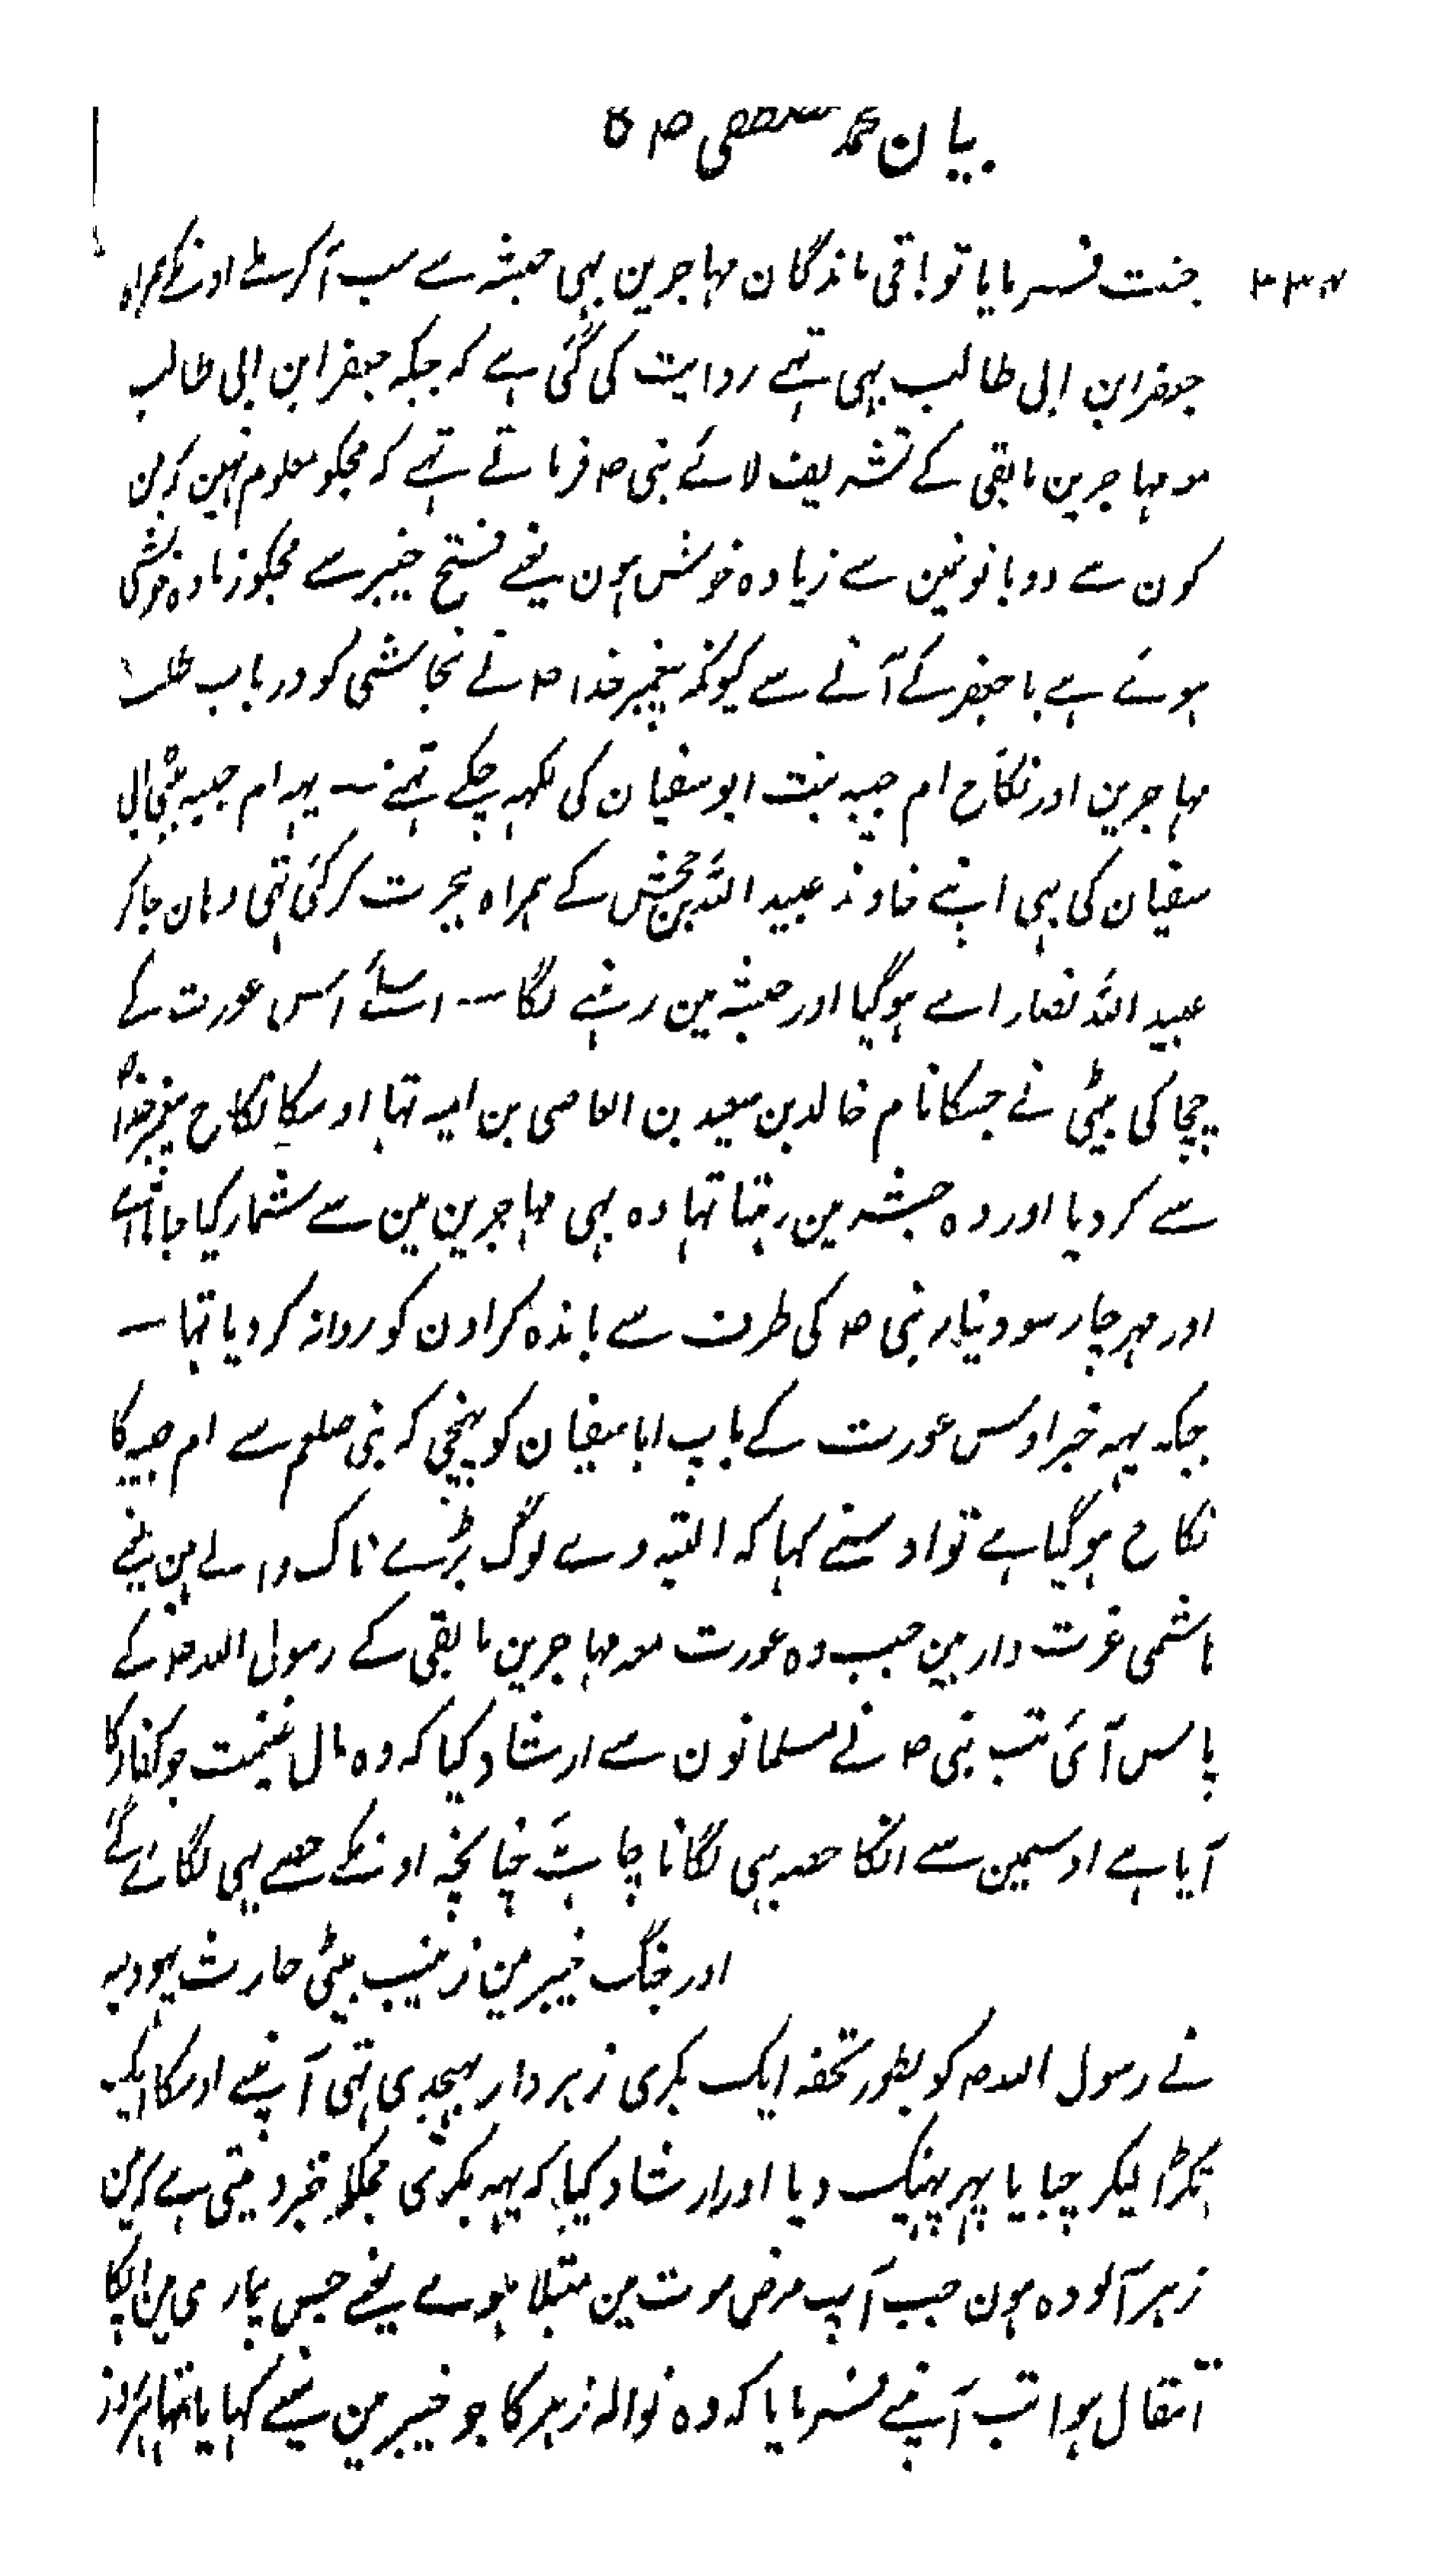 بیان محمد مصطفی ص کا
جنت فرمایا تو باقی ماندگان مہاجرین بہی حبشہ سے سب آ کر ملے اونکے ہمراہ
جعفر ابن ابی طالب بہی تہے روایت کی گئی ہے کہ جبکہ جعفر ابن ابی طالب
معہ مہاجرین مابقی کے تشریف لائے نبی ص فرماتے تہے کہ مجکو معلوم نہین کہ مین
کون سے دو باتونین سے زیادہ خوش ہون یعنے فتح خیبر سے مجکو زیادہ خوشی
ہوئے ہے یا جعفر کے آنے سے کیونکہ پیغمبر خدا ص نے نجاشی کو درباب طلب
مہاجرین اور نکاح ام حبیبہ بنت ابو سفیان کی لکہہ چکے تہے ۔ یہہ ام حبیبہ بیٹی ابی
سفیان کی بہی اپنے خاوند عبید اللہ بن جحش کے ہمراہ ہجرت کر گئی تہی وہان جا کر
عبید اللہ نصارا سے ہو گیا اور حبشہ مین رہنے لگا ۔ اسلئے اس عورت کے
چچا کی بیٹی نے جسکا نام خالد بن سعید بن العاصی بن امیہ تہا اوسکا نکاح پیغمبر خدا ص
سے کر دیا اور وہ حبشہ مین رہتا تہا وہ بہی مہاجرین مین سے شمار کیا جاتا ہے
اور مہر چار سو دینار نبی ص کی طرف سے باندہ کر اون کو روانہ کر دیا تہا ۔
جبکہ یہہ خبر اوس عورت کے باپ ابا سفیان کو پہنچی کہ نبی صلعم سے ام حبیبہ کا
نکاح ہو گیا ہے تو اوسنے کہا کہ البتہ وے لوگ بڑے ناک والے ہین یعنے
ہاشمی عزت دار ہین جب وہ عورت معہ مہاجرین مابقی کے رسول اللہ ص کے
پاس آئی تب نبی ص نے مسلمانون سے ارشاد کیا کہ وہ مال غنیمت جو کفار کا
آیا ہے اوسمین سے انکا حصہ بہی لگانا چاہئے چنانچہ اونکے حصے بہی لگائے گئے
اور جنگ خیبر مین زینب بیٹی حارث یہودیہ
نے رسول اللہ ص کو بطور تحفہ ایک بکری زہر دار بہیجدی تہی آپنے اوسکا ایک
ٹکڑا لیکر چبایا پہر پہینک دیا اور ارشاد کیا کہ یہہ بکری مجکو خبر دیتی ہے کہ مین
زہر آلودہ ہون جب آپ مرض موت مین مبتلا ہوے یعنے جس بیماری مین آپکا
انتقال ہوا تب آپنے فرمایا کہ وہ نوالہ زہر کا جو خیبر مین مینے کہایا تہا ہر روز